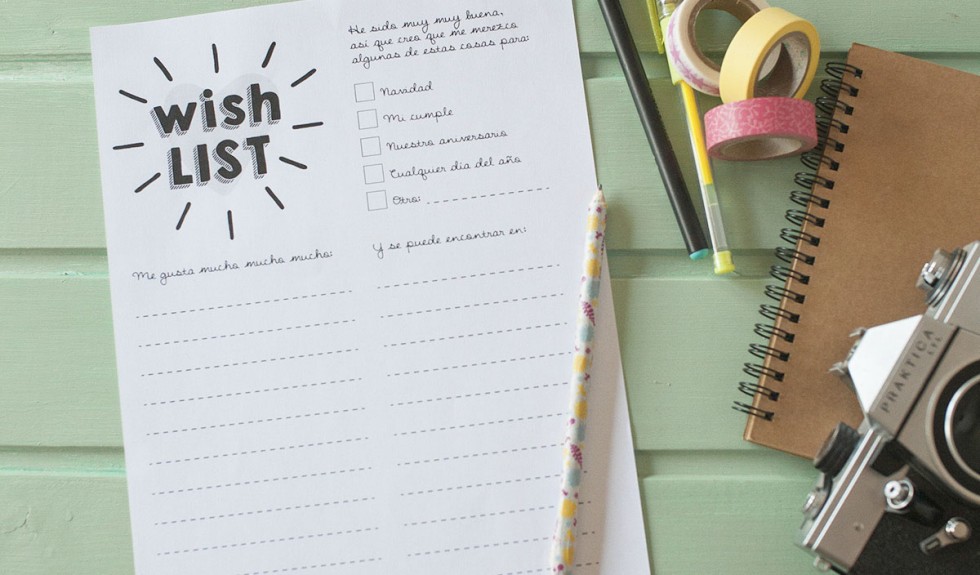 wish
LIST
He sido muy muy buena,
así que creo que me merezco
algunas de estas cosas para:
Navidad
Mi cumple
Nuestro aniversario
Cualquier día del año
Otro:
Me gusta mucho mucho mucho:
Y se puede encontrar en:
PRAKTICA